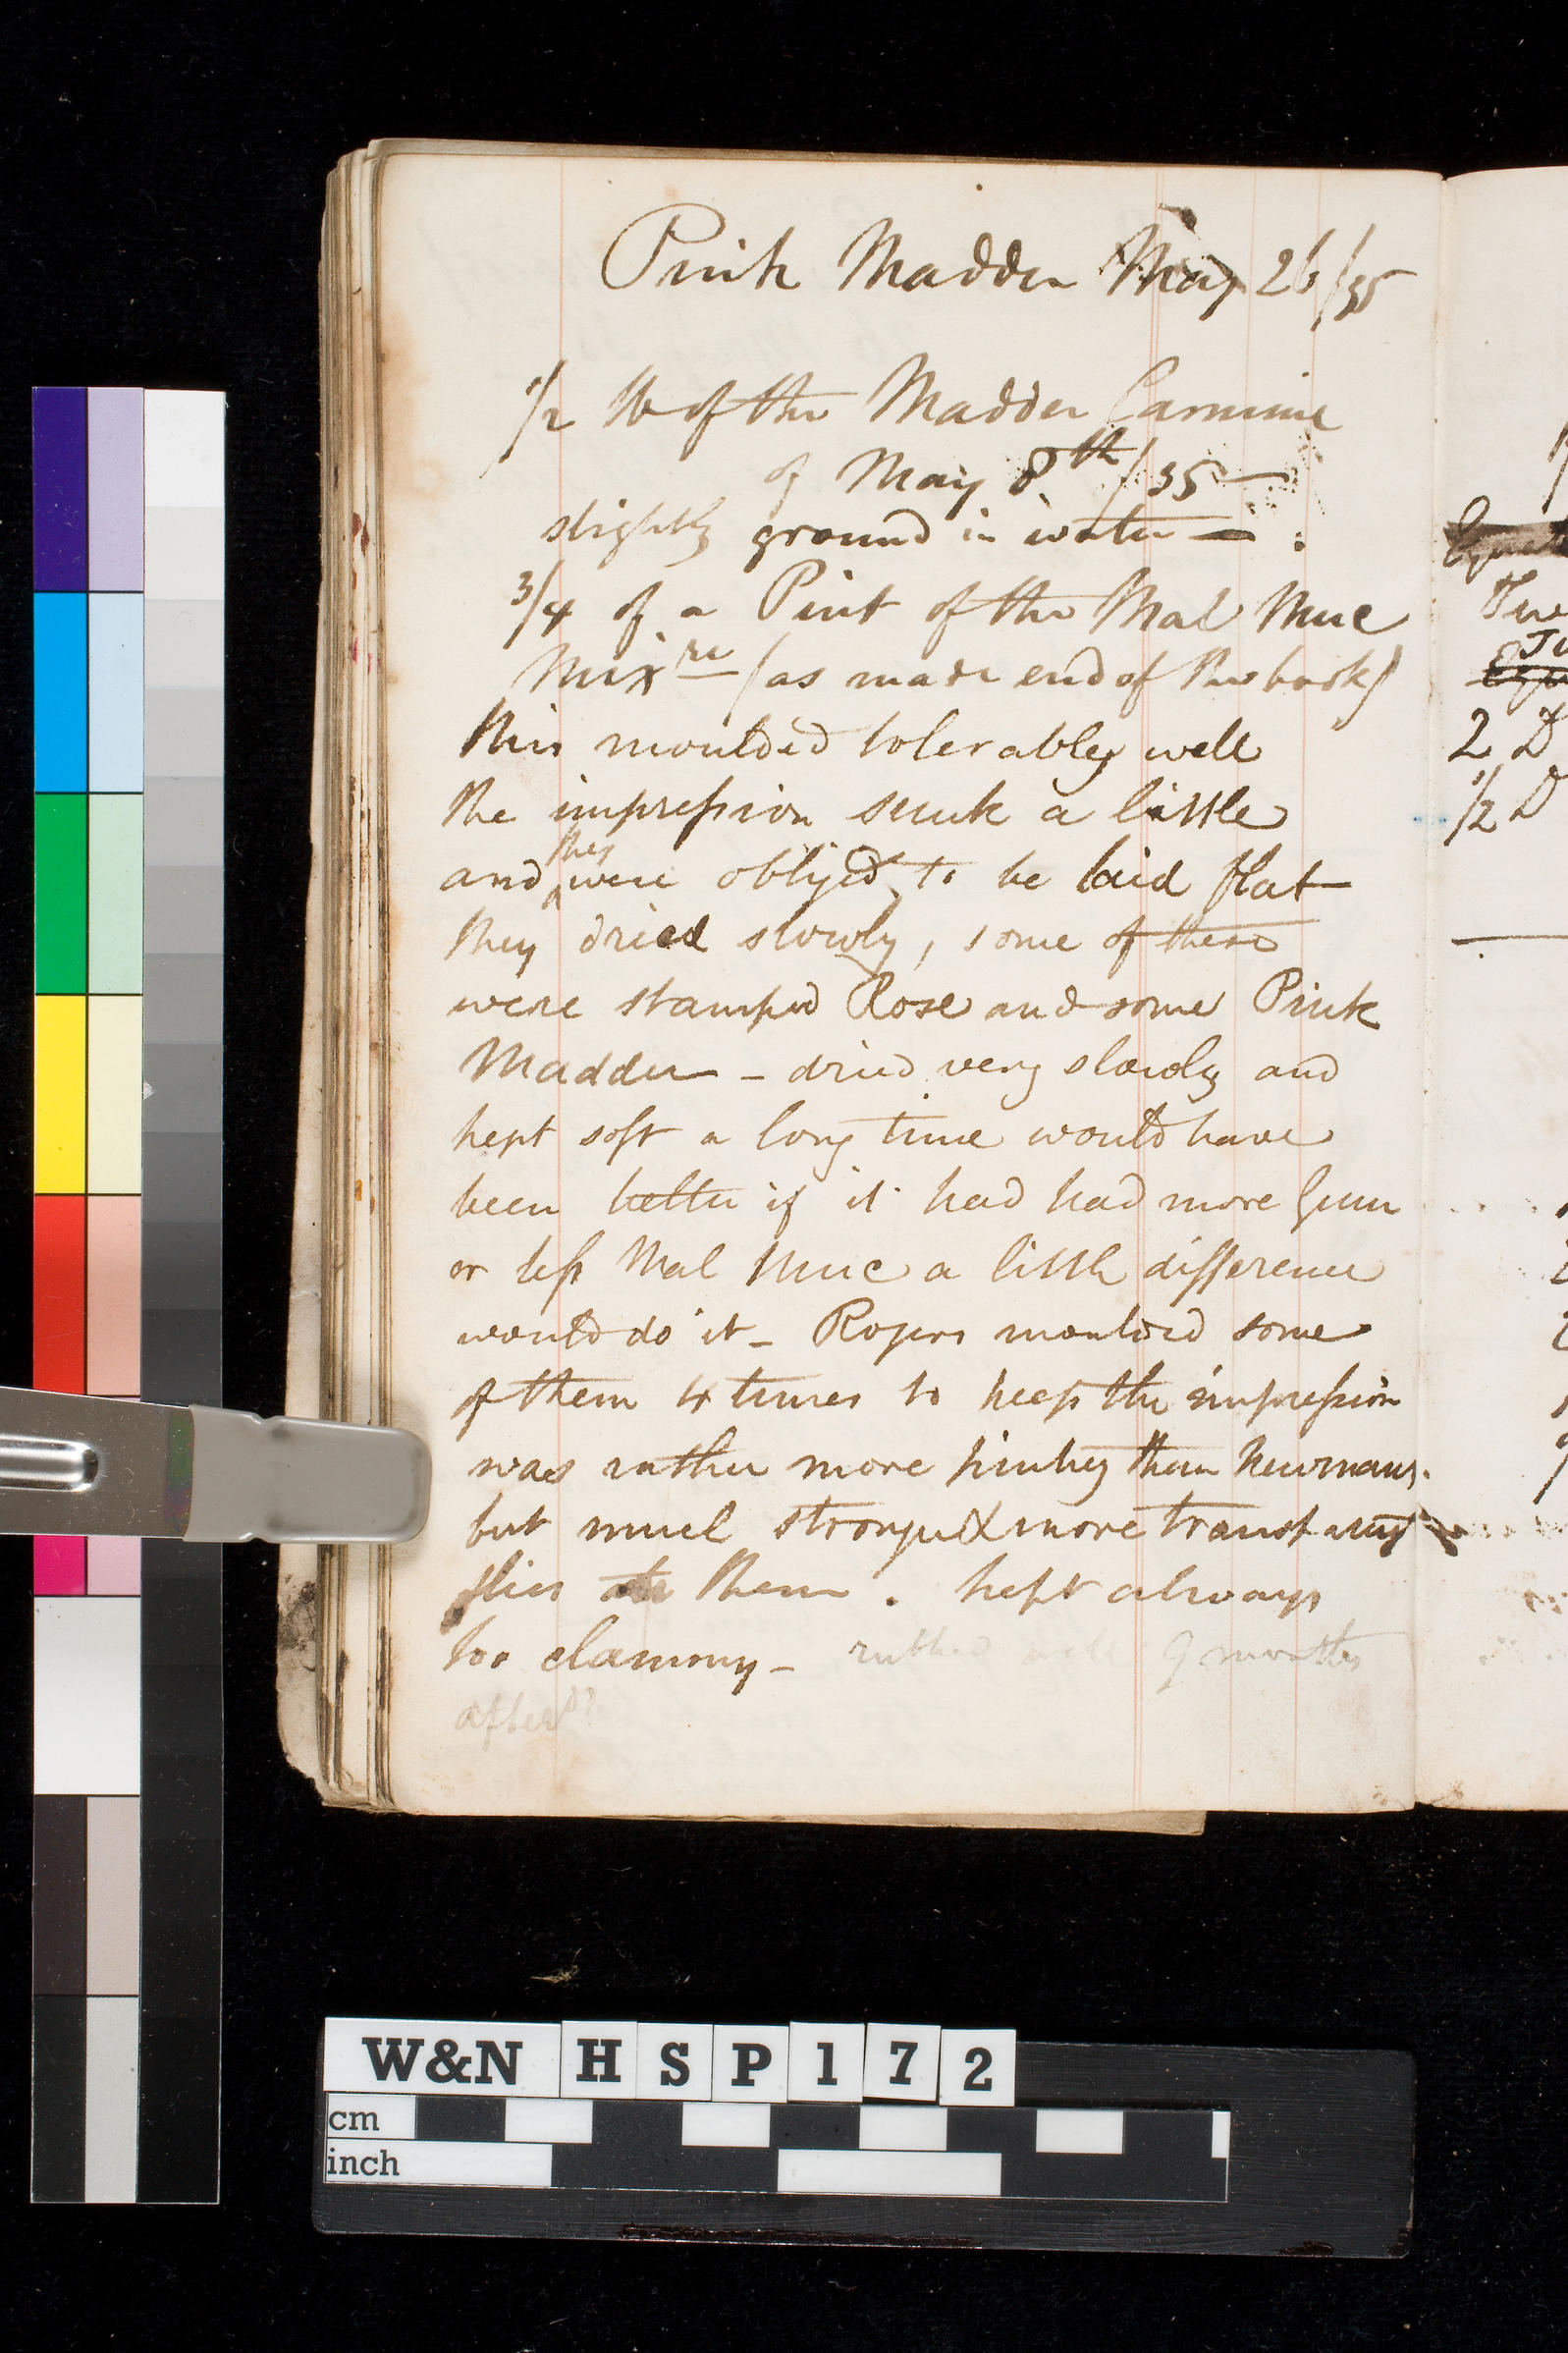 Pink Madder May 26/35
1/2 lb of the Madder Carmine
of May 8th/35 —
slightly ground in water — .
3/4 of a Pint of the Mal Muc
Mixre (as made end of this book)
this moulded tolerably well
the impression sunk a little
and they were obliged to be laid flat
they dried slowly, some of these
were stamped Rose and some Pink
Madder — dried very slowly and
kept soft a long time would have
been better if it had had more Gum
or less Mal Muc a little difference
would do it — Rogers moulded some
of them 4 times to keep the impression
was rather more pinkey than Newmans.
but much stronger & more transp
flies ate them . kept always
too clammy — rubbed well 9 months
afterds
1/2
2 D
1/2 D
W&N HSP172
cm
inch